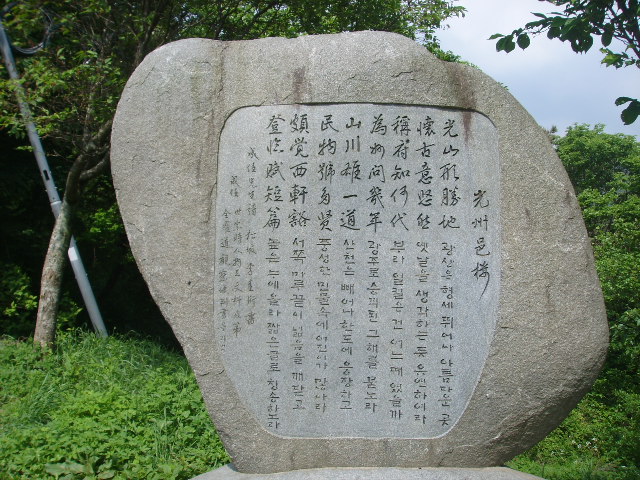 光州邑樓
光山形勝地 광산은 형세 뛰어나 아름다운 곳
懷古意悠然 옛날을 생각하는 뜻 유연하여라
稱府知何代 부라 일컬은 건 어느 때 였을까
為州問幾年 광주로 승격된 그 해를 묻노라
山川雄一道 산천은 빼어나 한도에 웅장하고
民物號多賢 풍성한 민물속에 어진이가 많아라
頗覺西軒豁 서쪽 마루 끝이 넓음을 깨닫고
登臨賦短篇 높은 누에 올라 짧은 글로 찬송하노라